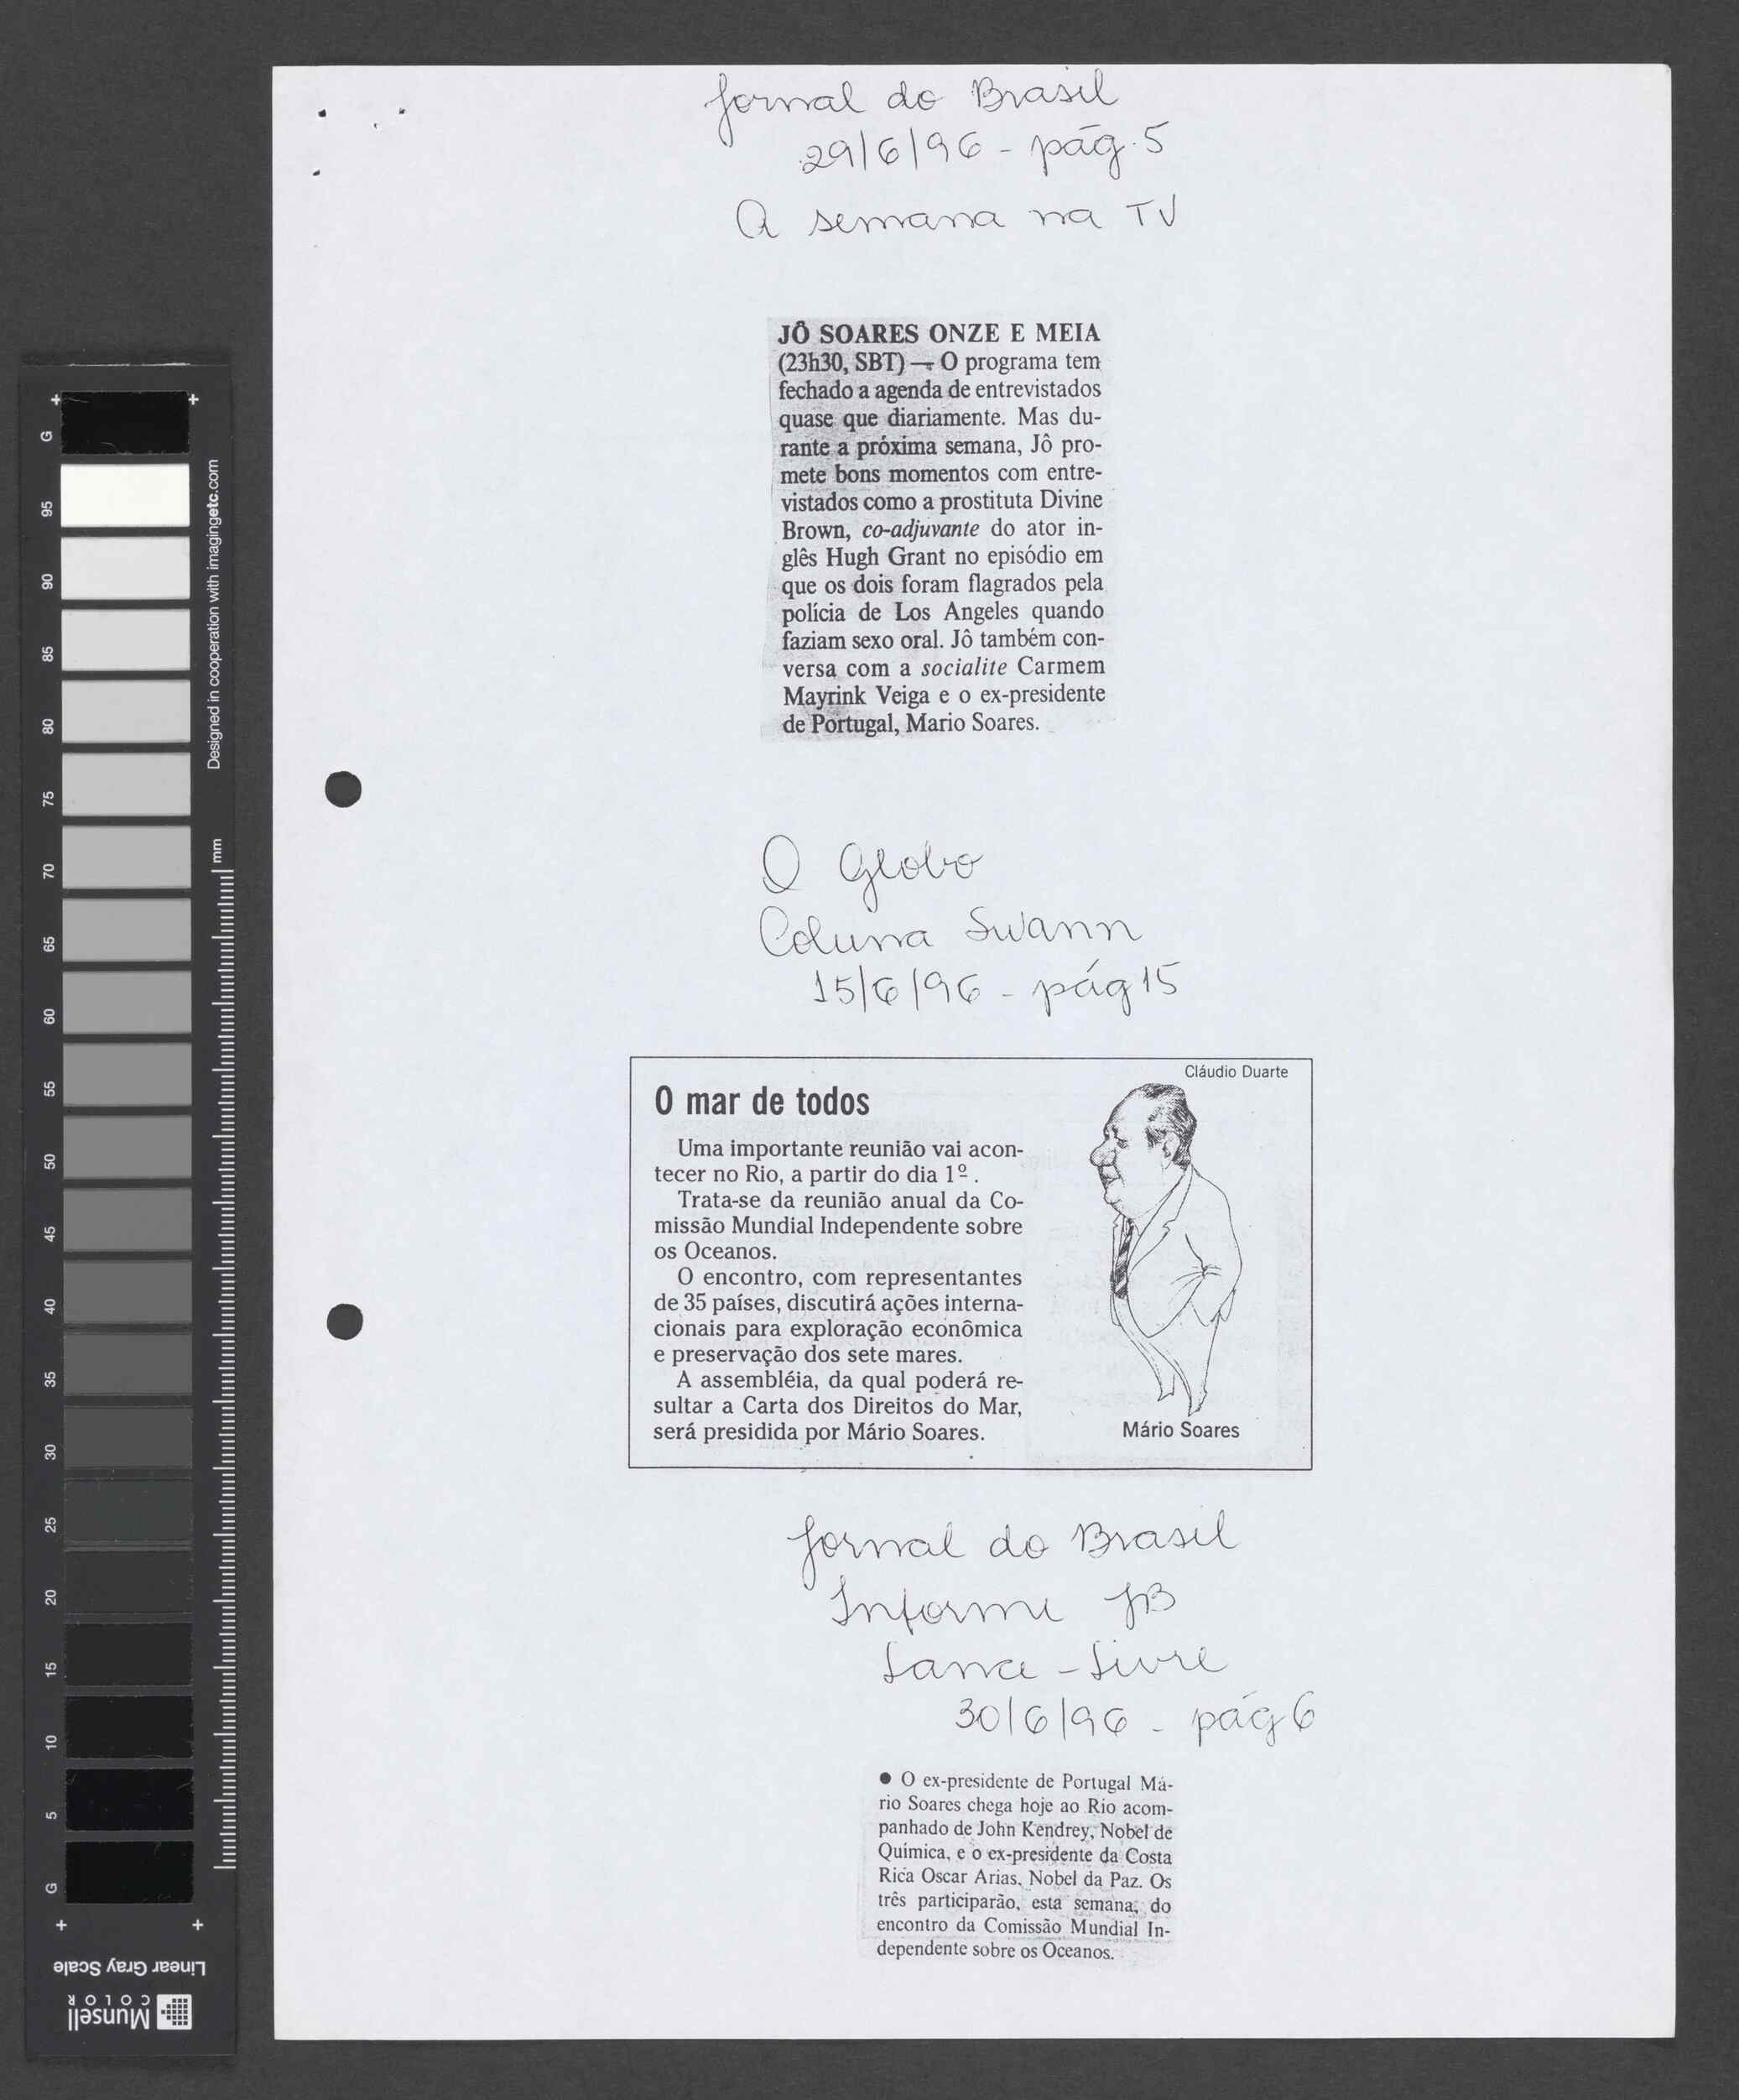 Jornal do Brasil
29/6/96 - pág. 5
A semana na TV
JÔ SOARES ONZE E MEIA
(23h30, SBT) — O programa tem
fechado a agenda de entrevistados
quase que diariamente. Mas du-
rante a próxima semana, Jô pro-
mete bons momentos com entre-
vistados como a prostituta Divine
Brown, co-adjuvante do ator in-
glês Hugh Grant no episódio em
que os dois foram flagrados pela
polícia de Los Angeles quando
faziam sexo oral. Jô também con-
versa com a socialite Carmem
Mayrink Veiga e o ex-presidente
de Portugal, Mario Soares.
O Globo
Coluna Swann
15/6/96 - pág 15
Cláudio Duarte
O mar de todos
Uma importante reunião vai acon-
tecer no Rio, a partir do dia 1º.
Trata-se da reunião anual da Co-
missão Mundial Independente sobre
os Oceanos.
O encontro, com representantes
de 35 países, discutirá ações interna-
cionais para exploração econômica
e preservação dos sete mares.
A assembléia, da qual poderá re-
sultar a Carta dos Direitos do Mar,
será presidida por Mário Soares.
Mário Soares
Jornal do Brasil
Informe JB
Lance-Livre
30/6/96 - pág 6
● O ex-presidente de Portugal Má-
rio Soares chega hoje ao Rio acom-
panhado de John Kendrey, Nobel de
Química, e o ex-presidente da Costa
Rica Oscar Arias, Nobel da Paz. Os
três participarão, esta semana, do
encontro da Comissão Mundial In-
dependente sobre os Oceanos.
G
95
90
85
80
75
70
65
60
55
50
45
40
35
30
25
20
15
10
5
G
Designed in cooperation with imagingetc.com
mm
Linear Gray Scale
Munsell
COLOR